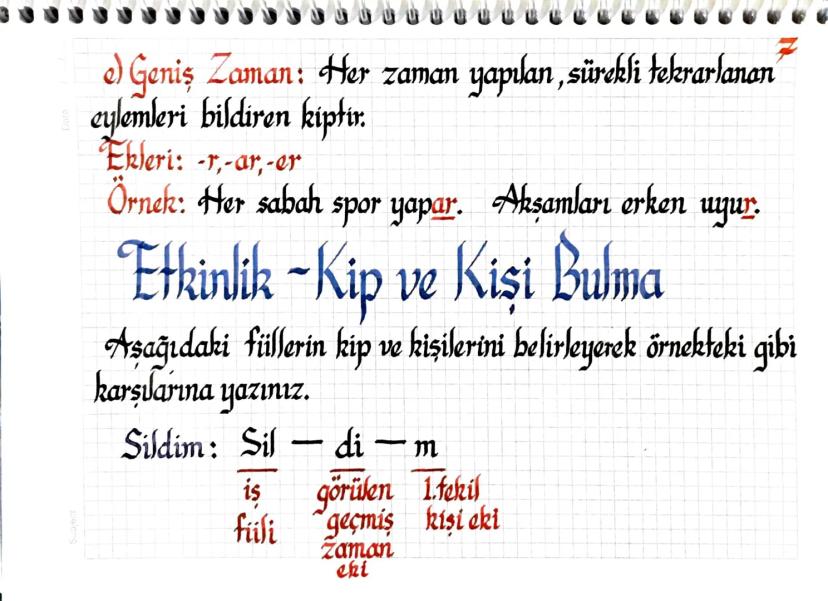 7
e) Geniş Zaman: Her zaman yapılan, sürekli tekrarlanan
eylemleri bildiren kiptir.
Ekleri: -r,-ar,-er
Örnek: Her sabah spor yapar. Akşamları erken uyur.
Etkinlik - Kip ve Kişi Bulma
Aşağıdaki fiillerin kip ve kişilerini belirleyerek örnekteki gibi
karşılarına yazınız.
Sildim: Sil — di — m
iş görülen 1.tekil
fiili geçmiş kişi eki
zaman
eki